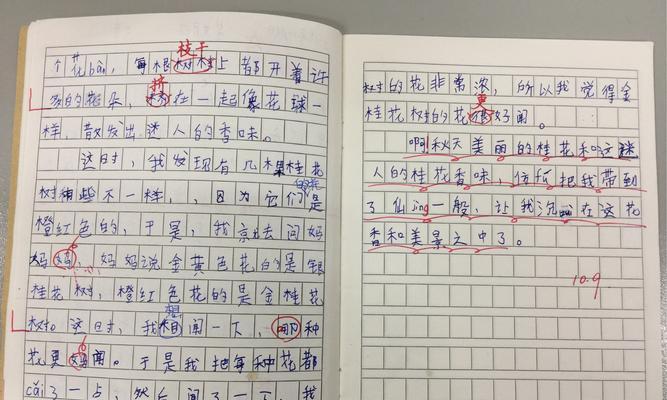 枝干
个花bān，每根树枝上都开着许
多的花朵，
挤
在一起像花球一
样，散发出迷人的香味。
这时，我发现有几棵桂花
的花
树有些不一样，因为它们是
橙红色的，于是，我就去问妈
妈妈，妈妈说金黄色花的是银
桂花树，橙红色花的是金桂花
想
树。这时，我相闻一下，哪种
花更好闻。于是我把每种花都
cǎi了一点，然后闻了一下，我
树的花非常浓，所以我觉得金
更
桂花树的花很好闻。
啊！秋天美丽的桂花和这迷
人的桂花香味，仿fú把我带到
了仙jìng一般，让我沉zuì在这花
香和美景之中了。
10.9